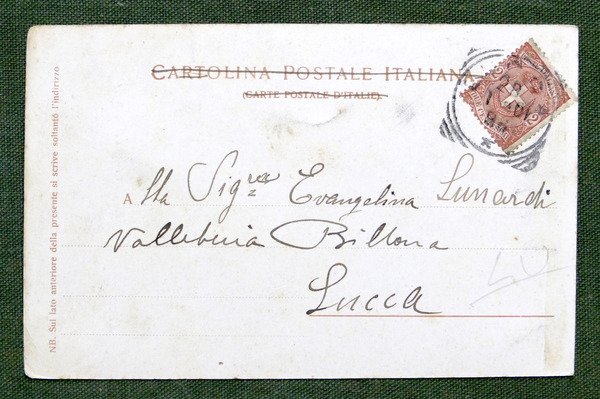 CARTOLINA POSTALE ITALIANA
(CARTE POSTALE D'ITALIE).
Alla Sig.ra Evangelina Lunardi
Vallebuia Billona
Lucca
N.B. Sul lato anteriore della presente si scrive soltanto l'indirizzo